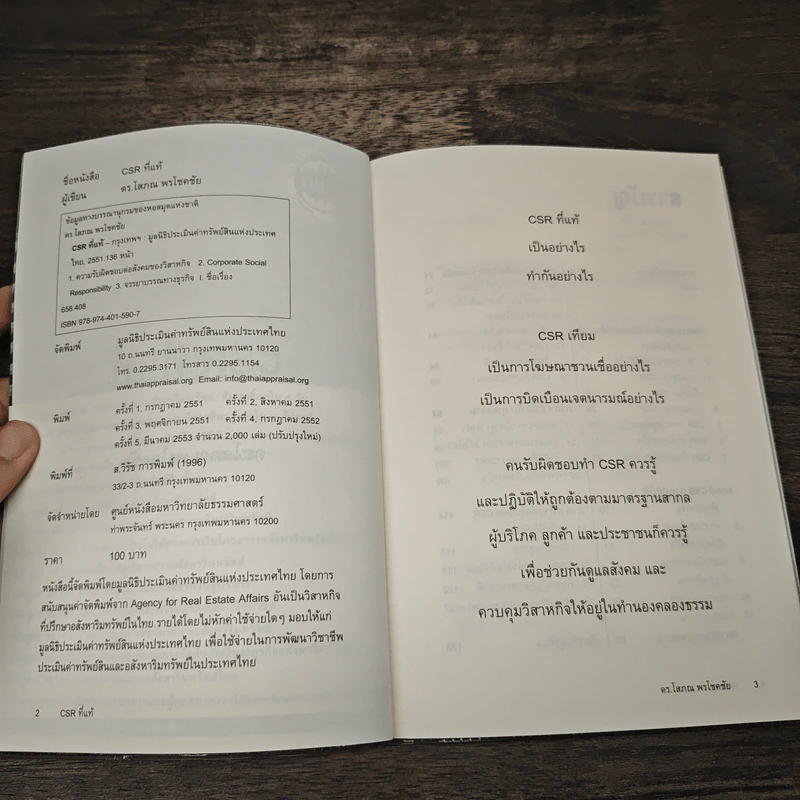 ชื่อหนังสือ CSR ที่แท้
ผู้เขียน ดร.โสภณ พรโชคชัย
ข้อมูลทางบรรณานุกรมของหอสมุดแห่งชาติ
ดร.โสภณ พรโชคชัย
CSR ที่แท้ – กรุงเทพฯ : มูลนิธิประเมินค่าทรัพย์สินแห่งประเทศ
ไทย, 2551.136 หน้า
1. ความรับผิดชอบต่อสังคมของวิสาหกิจ 2. Corporate Social
Responsibility 3. จรรยาบรรณทางธุรกิจ I. ชื่อเรื่อง
658.408
ISBN 978-974-401-590-7
จัดพิมพ์ มูลนิธิประเมินค่าทรัพย์สินแห่งประเทศไทย
10 ถ.นนทรี ยานนาวา กรุงเทพมหานคร 10120
โทร. 0.2295.3171 โทรสาร 0.2295.1154
www.thaiappraisal.org Email: info@thaiappraisal.org
พิมพ์ ครั้งที่ 1, กรกฎาคม 2551 ครั้งที่ 2, สิงหาคม 2551
ครั้งที่ 3, พฤศจิกายน 2551 ครั้งที่ 4, กรกฎาคม 2552
ครั้งที่ 5, มีนาคม 2553 จำนวน 2,000 เล่ม (ปรับปรุงใหม่)
พิมพ์ที่ ส.วิรัช การพิมพ์ (1996)
33/2-3 ถ.นนทรี กรุงเทพมหานคร 10120
จัดจำหน่ายโดย ศูนย์หนังสือมหาวิทยาลัยธรรมศาสตร์
ท่าพระจันทร์ พระนคร กรุงเทพมหานคร 10200
ราคา 100 บาท
หนังสือนี้จัดพิมพ์โดยมูลนิธิประเมินค่าทรัพย์สินแห่งประเทศไทย โดยการ
สนับสนุนค่าจัดพิมพ์จาก Agency for Real Estate Affairs อันเป็นวิสาหกิจ
ที่ปรึกษาอสังหาริมทรัพย์ในไทย รายได้โดยไม่หักค่าใช้จ่ายใดๆ มอบให้แก่
มูลนิธิประเมินค่าทรัพย์สินแห่งประเทศไทย เพื่อใช้จ่ายในการพัฒนาวิชาชีพ
ประเมินค่าทรัพย์สินและอสังหาริมทรัพย์ในประเทศไทย
2 CSR ที่แท้
CSR ที่แท้
เป็นอย่างไร
ทำกันอย่างไร
CSR เทียม
เป็นการโฆษณาชวนเชื่ออย่างไร
เป็นการบิดเบือนเจตนารมณ์อย่างไร
คนรับผิดชอบทำ CSR ควรรู้
และปฏิบัติให้ถูกต้องตามมาตรฐานสากล
ผู้บริโภค ลูกค้า และประชาชนก็ควรรู้
เพื่อช่วยกันดูแลสังคม และ
ควบคุมวิสาหกิจให้อยู่ในทำนองคลองธรรม
ดร.โสภณ พรโชคชัย 3